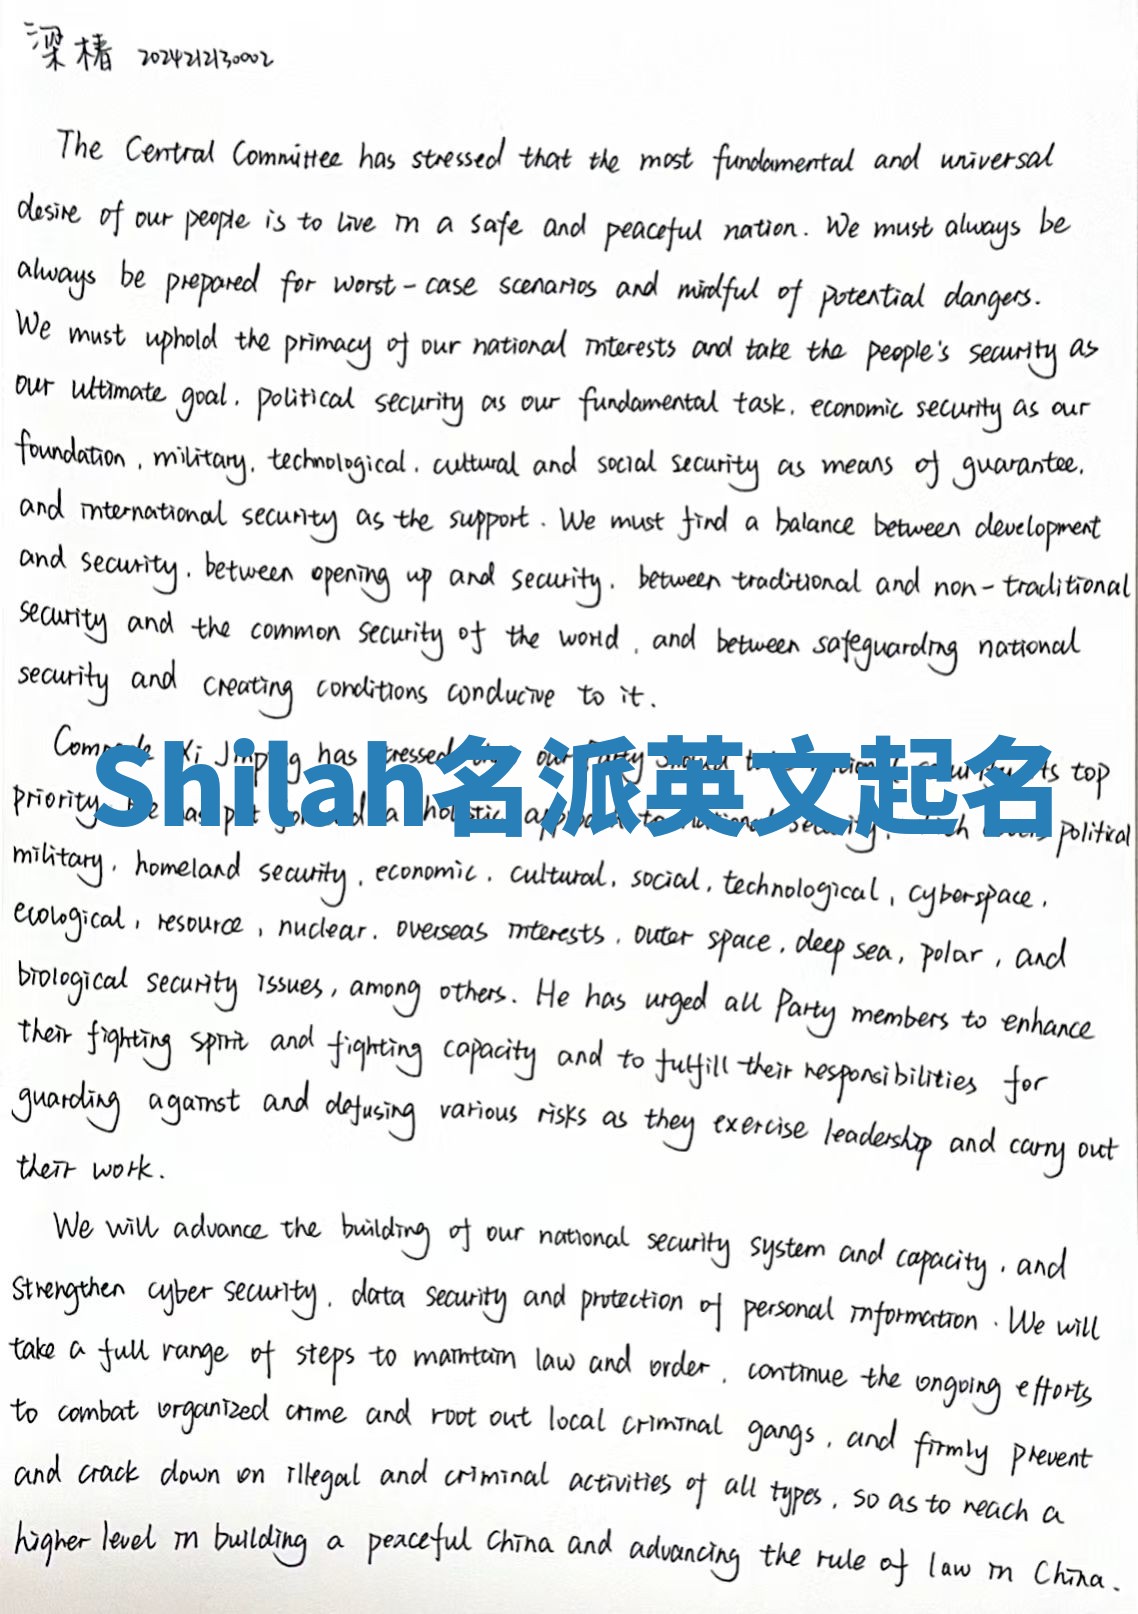 梁椿 2024212130002
The Central Committee has stressed that the most fundamental and universal
desire of our people is to live in a safe and peaceful nation. We must always be
always be prepared for worst-case scenarios and mindful of potential dangers.
We must uphold the primacy of our national interests and take the people's security as
our ultimate goal, political security as our fundamental task, economic security as our
foundation, military, technological, cultural and social security as means of guarantee,
and international security as the support. We must find a balance between development
and security, between opening up and security, between traditional and non-traditional
security and the common security of the world, and between safeguarding national
security and creating conditions conducive to it.
Xi Jinping has stressed our Party should security its top
Shilah名派英文起名
priority. He has put a holistic approach to national security, political
military, homeland security, economic, cultural, social, technological, cyberspace,
ecological, resource, nuclear, overseas interests, outer space, deep sea, polar, and
biological security issues, among others. He has urged all Party members to enhance
their fighting spirit and fighting capacity and to fulfill their responsibilities for
guarding against and defusing various risks as they exercise leadership and carry out
their work.
We will advance the building of our national security system and capacity, and
strengthen cyber security, data security and protection of personal information. We will
take a full range of steps to maintain law and order, continue the ongoing efforts
to combat organized crime and root out local criminal gangs, and firmly prevent
and crack down on illegal and criminal activities of all types, so as to reach a
higher level in building a peaceful China and advancing the rule of law in China.